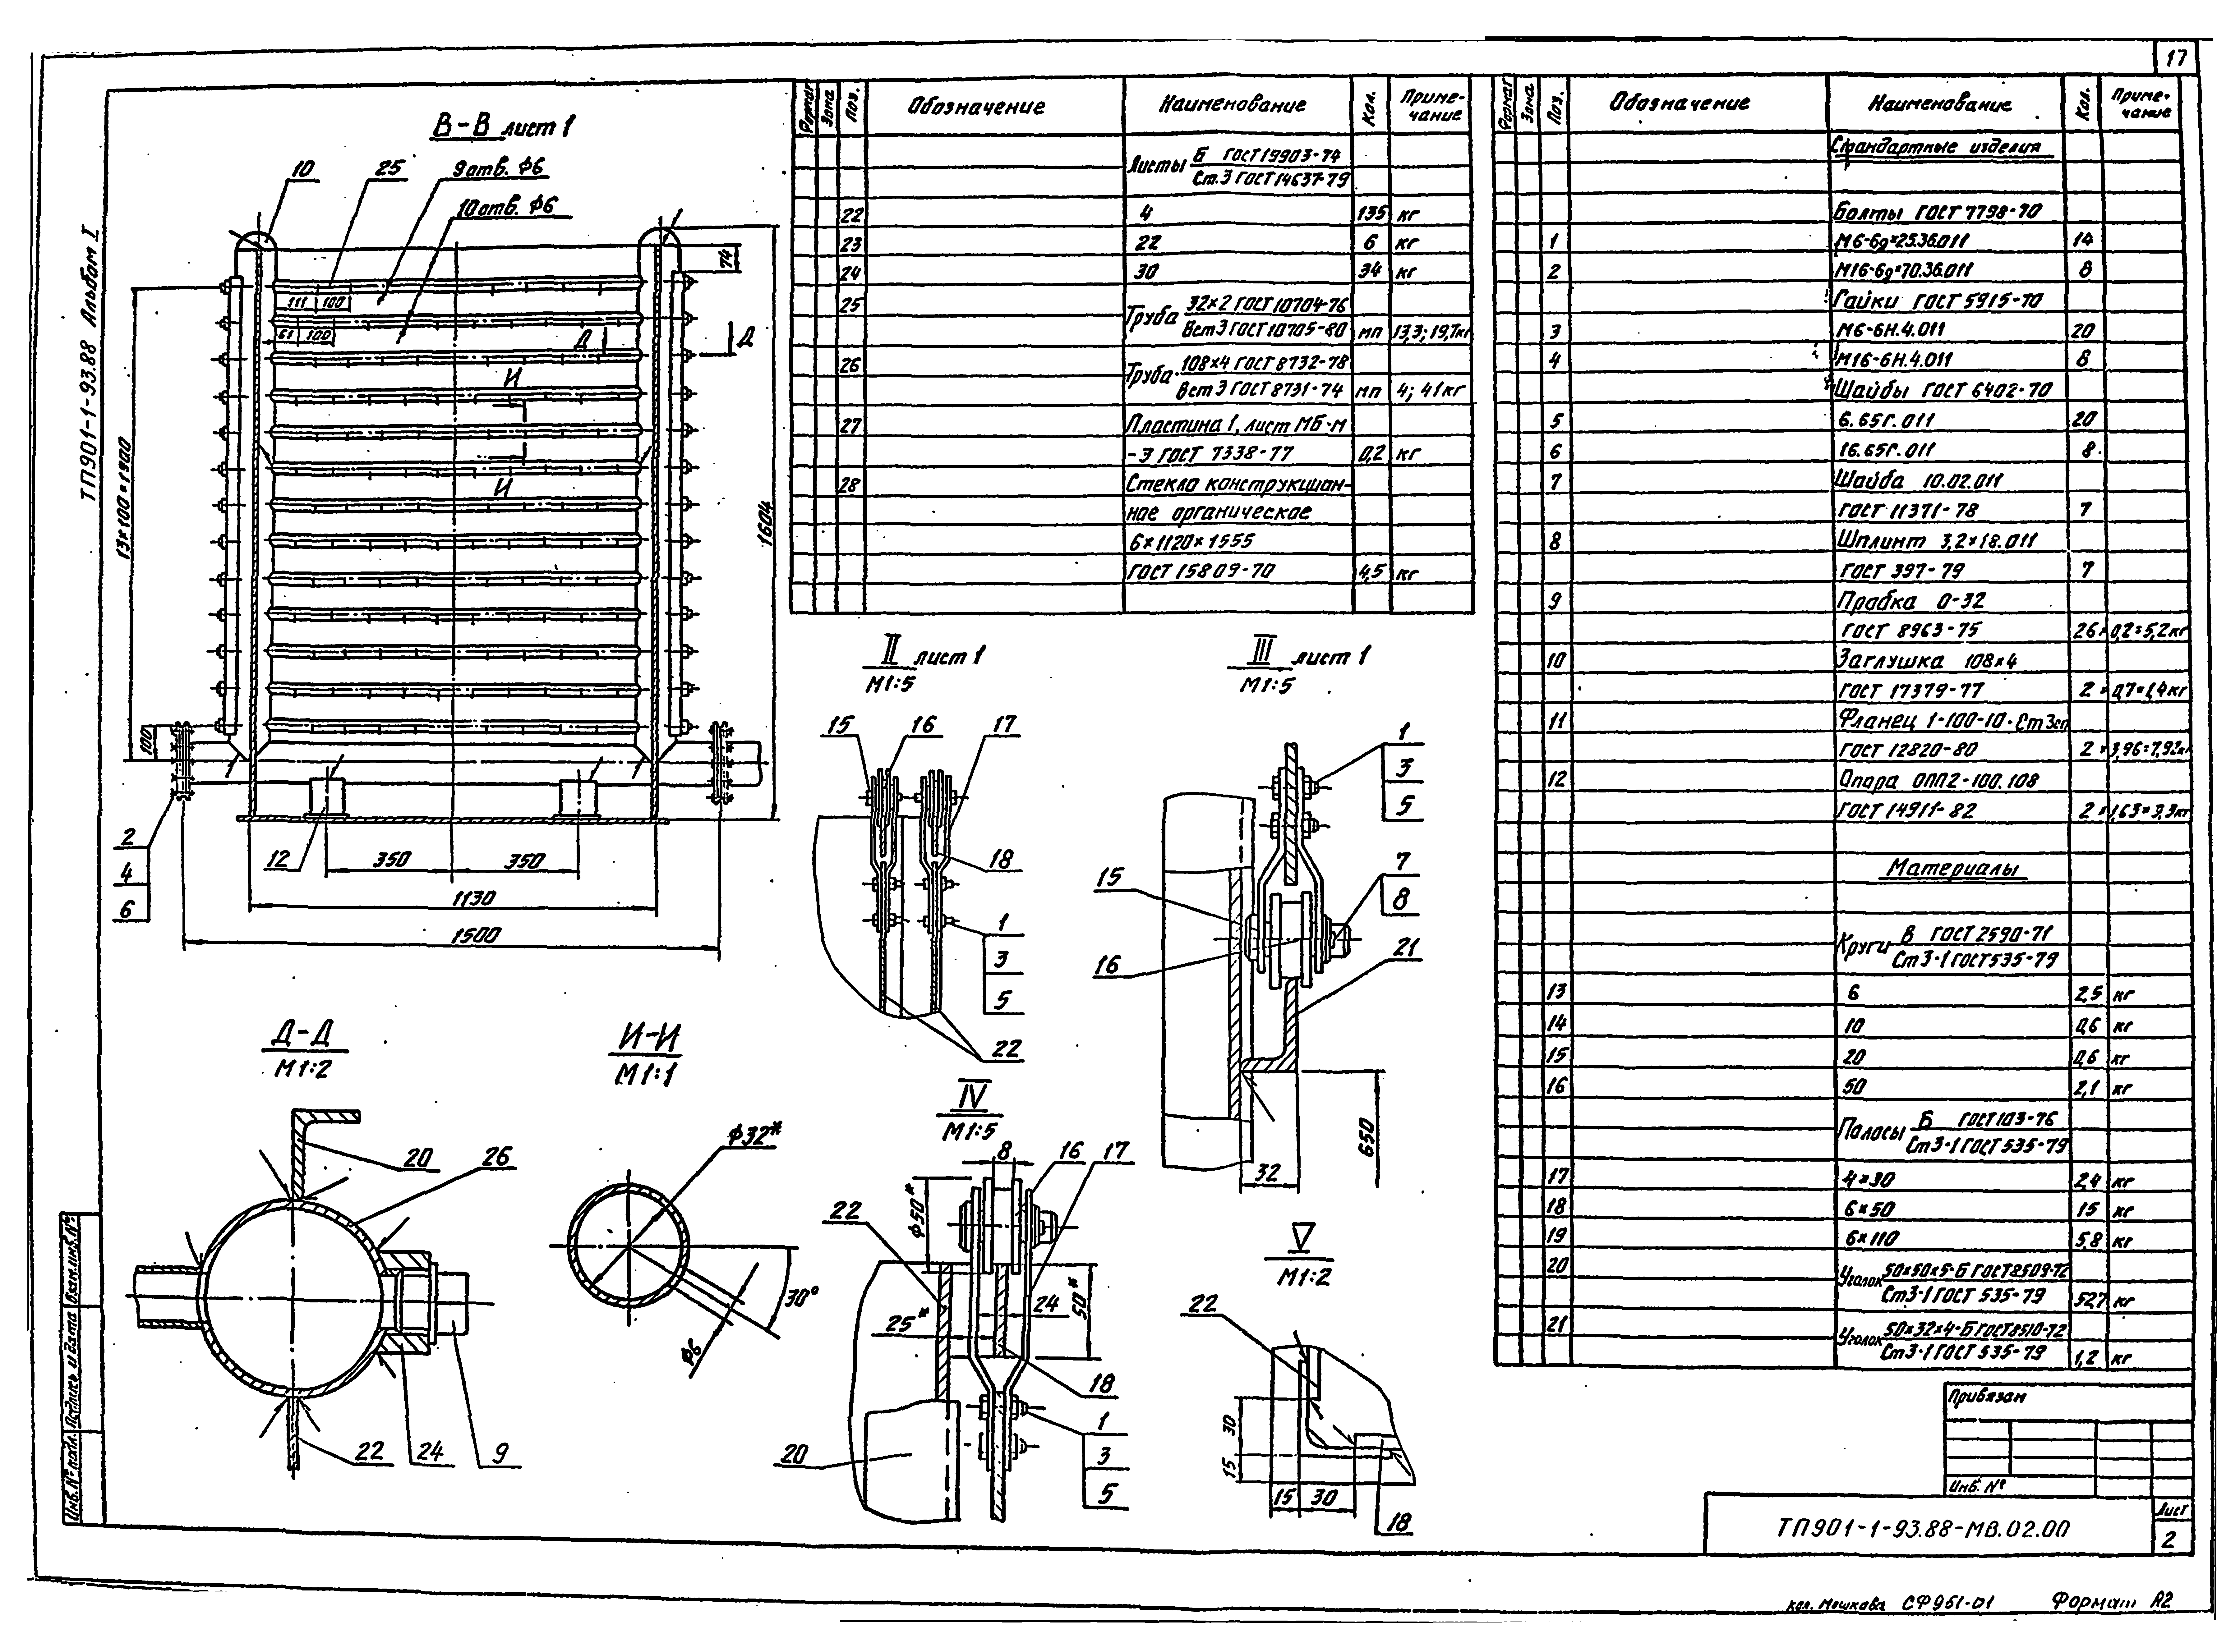 17
ТП901-1-93.88 Альбом I
В-В лист 1
10
25
9 отв. Ф6
10 отв. Ф6
74
111
100
61
100
Д
Д
И
И
13×100=1300
1604
100
2
4
6
12
350
350
1130
1500
Формат
Зона
Поз.
Обозначение
Наименование
Кол.
Приме-
чание
Листы Б ГОСТ 19903-74
Ст.3 ГОСТ 14637-79
22 4 135 кг
23 22 6 кг
24 30 34 кг
25 Труба 32×2 ГОСТ 10704-76
Вст3 ГОСТ 10705-80 мп 13,3; 19,7кг
26 Труба 108×4 ГОСТ 8732-78
Вст3 ГОСТ 8731-74 мп 4; 41кг
27 Пластина 1, лист МБ-М
-Э ГОСТ 7338-77 0,2 кг
28 Стекло конструкцион-
ное органическое
6×1120×1555
ГОСТ 15809-70 4,5 кг
Формат
Зона
Поз.
Обозначение
Наименование
Кол.
Приме-
чание
Стандартные изделия
Болты ГОСТ 7798-70
1 М6-6g×25.36.011 14
2 М16-6g×70.36.011 8
Гайки ГОСТ 5915-70
3 М6-6Н.4.011 20
4 М16-6Н.4.011 8
Шайбы ГОСТ 6402-70
5 6.65Г.011 20
6 16.65Г.011 8
7 Шайба 10.02.011
ГОСТ 11371-78 7
8 Шплинт 3,2×18.011
ГОСТ 397-79 7
9 Пробка О-32
ГОСТ 8963-75 26 × 0,2=5,2кг
10 Заглушка 108×4
ГОСТ 17379-77 2 × 0,7=1,4кг
11 Фланец 1-100-10-Ст3сп
ГОСТ 12820-80 2 × 3,96=7,92кг
12 Опора ОПП2-100.108
ГОСТ 14911-82 2 × 1,63=3,3кг
Материалы
Круги В ГОСТ 2590-71
Ст3-1 ГОСТ 535-79
13 6 2,5 кг
14 10 0,6 кг
15 20 0,6 кг
16 50 2,1 кг
Полосы Б ГОСТ 103-76
Ст3-1 ГОСТ 535-79
17 4×30 2,4 кг
18 6×50 15 кг
19 6×110 5,8 кг
20 Уголок 50×50×5-Б ГОСТ 8509-72
Ст3-1 ГОСТ 535-79 52,7 кг
21 Уголок 50×32×4-Б ГОСТ 8510-72
Ст3-1 ГОСТ 535-79 1,2 кг
II лист 1
М1:5
15
16
17
18
1
3
5
22
III лист 1
М1:5
1
3
5
7
8
15
16
21
650
32
Д-Д
М1:2
20
26
22
24
9
И-И
М1:1
Ф32*
30°
Ф6
IV
М1:5
8
16
17
Ф50*
22
24
50*
25*
18
20
1
3
5
V
М1:2
22
30
15
15
30
18
Привязан
Инв. №
ТП901-1-93.88-МВ.02.00
Лист
2
Инв.№ подл.
Подпись и дата
Взам.инв.№
кол. Мошкова СФ951-01 Формат А2